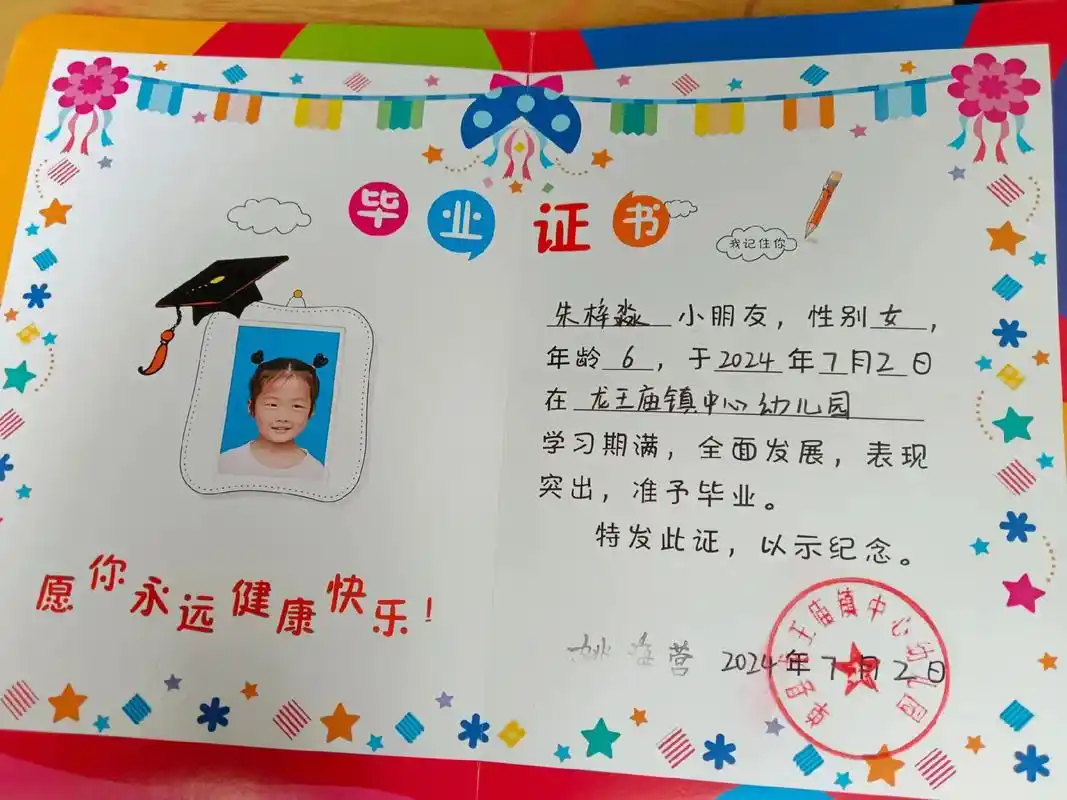 毕业证书
我记住你
朱梓淼 小朋友，性别女，
年龄 6 ，于2024年7月2日
在 龙王庙镇中心幼儿园
学习期满，全面发展，表现
突出，准予毕业。
特发此证，以示纪念。
愿你永远健康快乐！
姚海营 2024年7月2日
王庙镇中心幼儿园